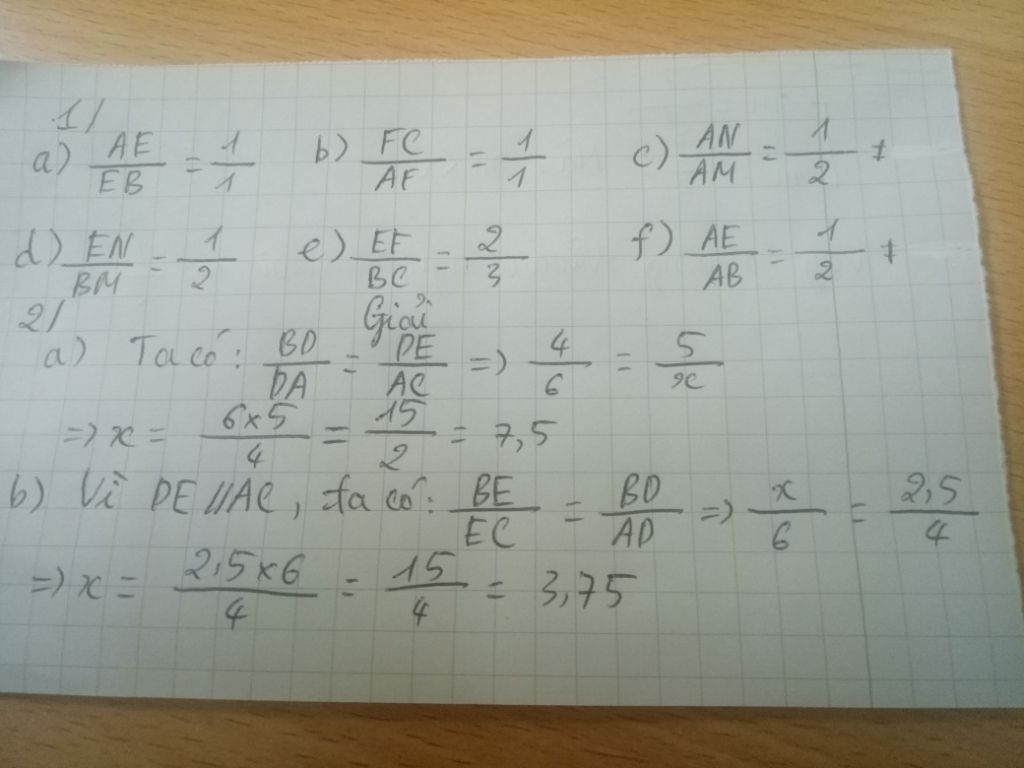 1/
a) AE/EB = 1/1 b) FC/AF = 1/1 c) AN/AM = 1/2 +
d) EN/BM = 1/2 e) EF/BC = 2/3 f) AE/AB = 1/2 +
2/ Giải
a) Ta có: BD/DA = DE/AC => 4/6 = 5/x
=> x = 6x5/4 = 15/2 = 7,5
b) Vì DE//AC, ta có: BE/EC = BD/AD => x/6 = 2,5/4
=> x = 2,5x6/4 = 15/4 = 3,75